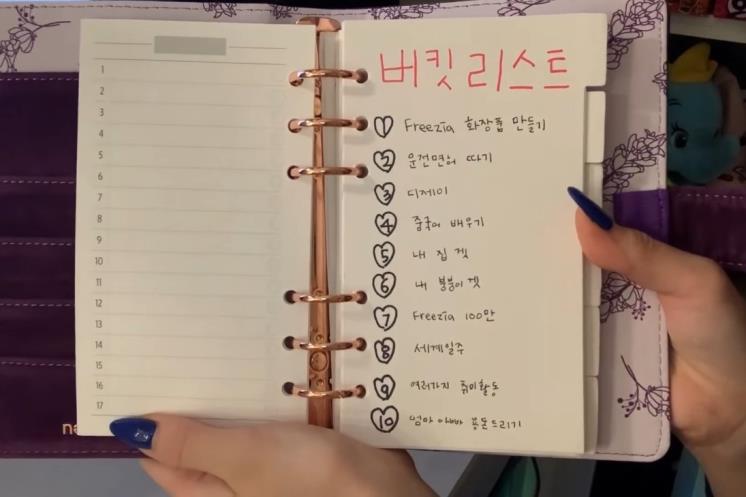 1
2
3
4
5
6
7
8
9
10
11
12
13
14
15
16
17
버킷리스트
1 Freezia 화장품 만들기
2 운전면허 따기
3 디제이
4 중국어 배우기
5 내 집 겟
6 내 붕붕이 겟
7 Freezia 100만
8 세계일주
9 여러가지 취미활동
10 엄마 아빠 용돈드리기